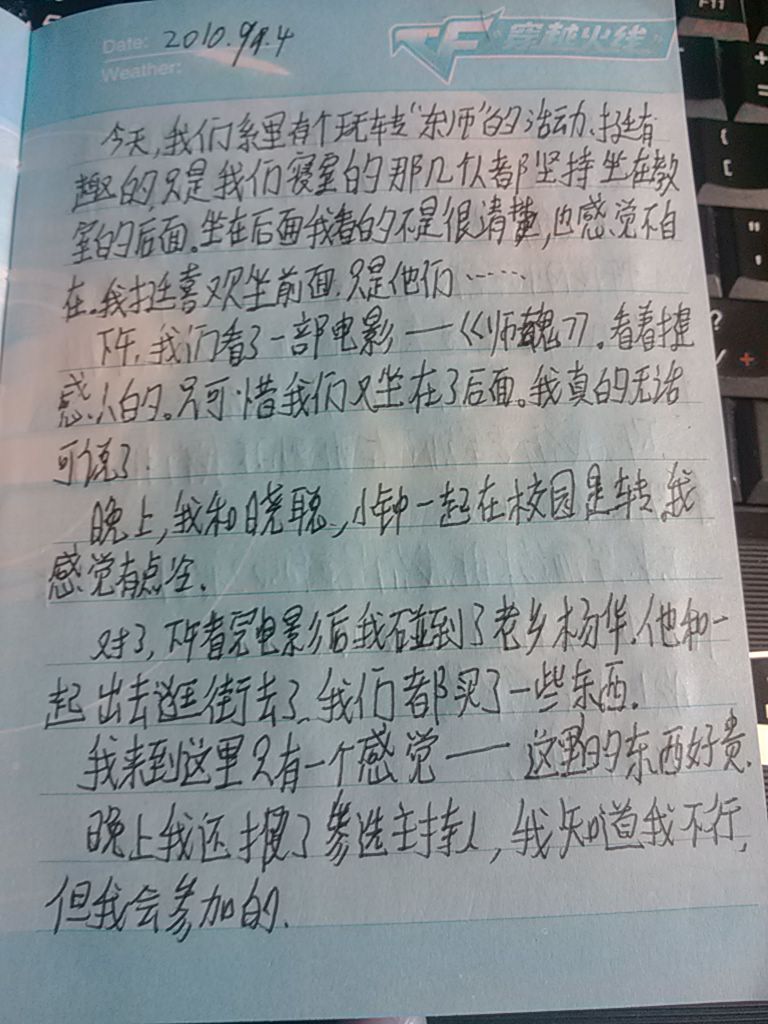 Date: 2010.9.4
CF 穿越火线
Weather:
今天,我们系里有个玩转“东师”的活动.挺有
趣的,只是我们寝室的那几个人都坚持坐在教
室的后面。坐在后面我看的不是很清楚,也感觉不自
在。我挺喜欢坐前面.只是他们……
下午,我们看了一部电影——《师魂》。看着挺
感人的。只可惜我们又坐在了后面。我真的无话
可说了.
晚上,我和晓聪,小钟一起在校园里转.我
感觉有点冷.
对了,下午看完电影后我碰到了老乡杨华.他和一
起出去逛街去了.我们都买了一些东西.
我来到这里只有一个感觉——这里的东西好贵.
晚上我还报了参选主持人,我知道我不行,
但我会参加的.
F11
+
=
{
[
"
'
?
/
+